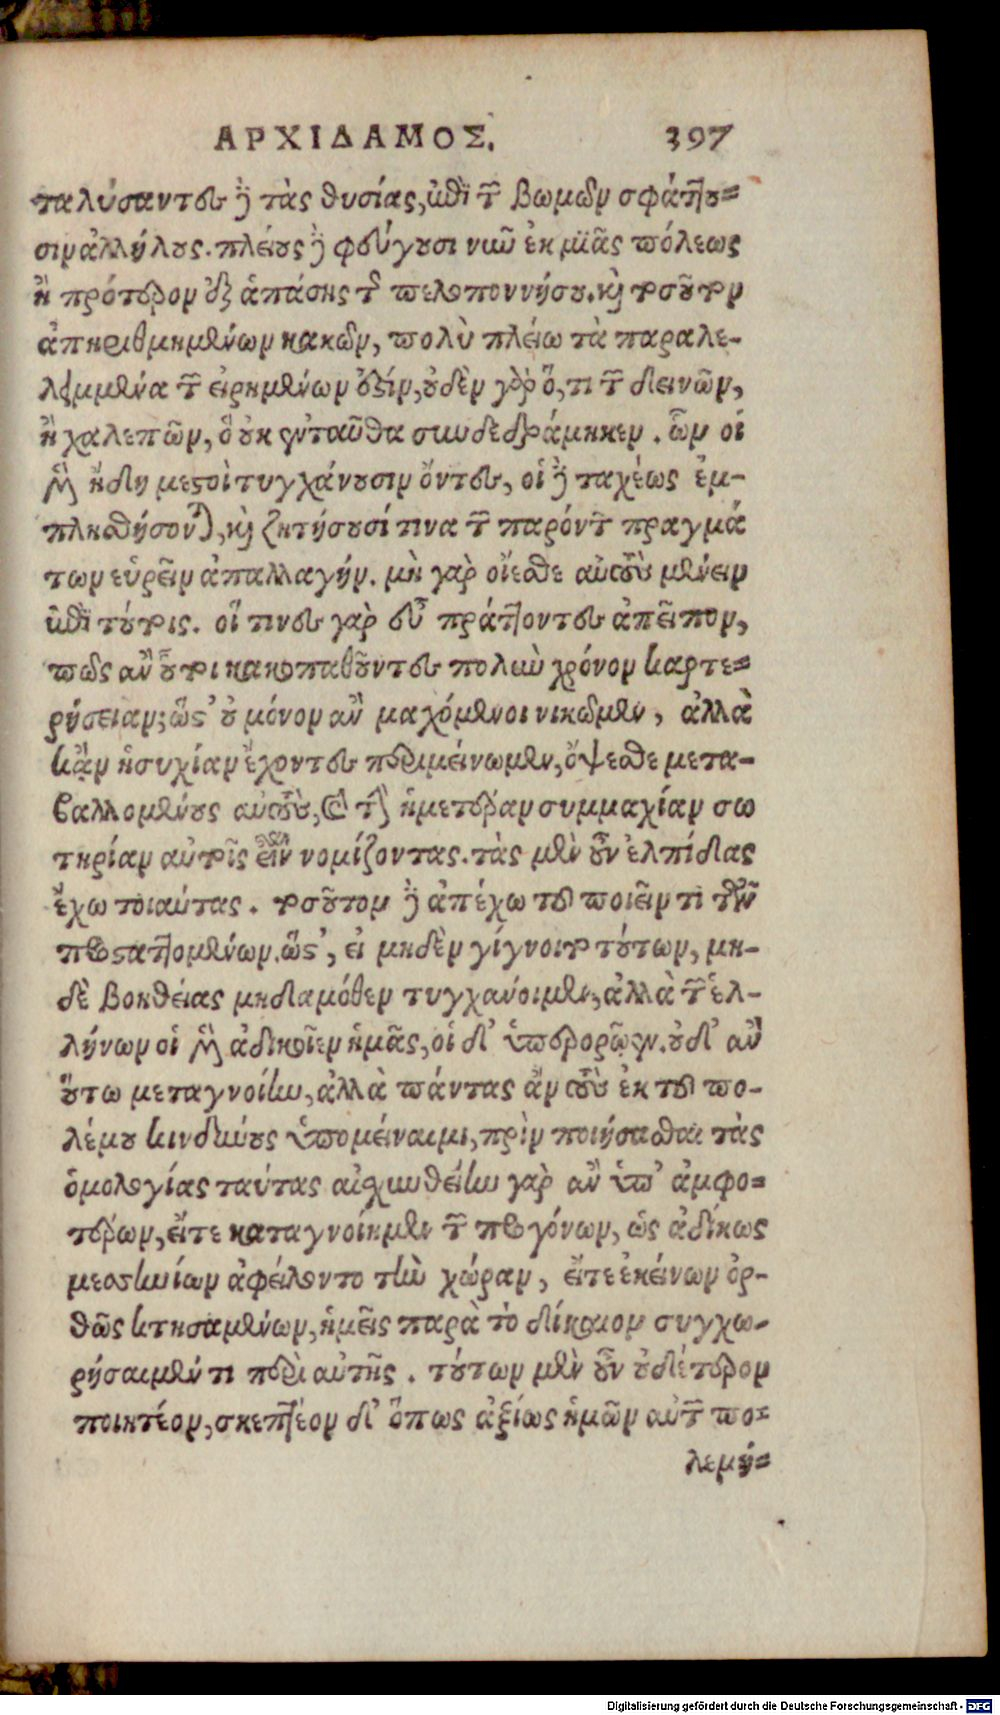 ΑΡΧΙΔΑΜΟΣ. 397
ταλύσαντες δὲ τὰς θυσίας, ἐπὶ τῶν βωμῶν σφάττου=
σιν ἀλλήλους. πλείους δὲ φεύγουσι νῦν ἐκ μιᾶς πόλεως
ἢ πρότερον ἐξ ἁπάσης τῆς πελοποννήσου. καὶ τοσούτων
ἀπηριθμημένων κακῶν, πολὺ πλείω τὰ παραλε-
λειμμένα τῶν εἰρημένων ἐστίν, οὐδὲν γὰρ ὅ, τι τῶν δεινῶν,
ἢ χαλεπῶν, ὃ οὐκ ἐνταῦθα συνδεδράμηκεν. ὧν οἱ
μὲν ἤδη μεστοὶ τυγχάνουσιν ὄντες, οἱ δὲ ταχέως ἐμ-
πλησθήσονται, καὶ ζητήσουσί τινα τῶν παρόντων πραγμά
των εὑρεῖν ἀπαλλαγήν. μὴ γὰρ οἴεσθε αὐτοὺς μένειν
ἐπὶ τούτοις. οἵ τινες γὰρ εὖ πράττοντες ἀπεῖπον,
πῶς ἂν οὗτοι κακοπαθοῦντες πολὺν χρόνον καρτε=
ρήσειαν; ὥστ' οὐ μόνον ἂν μαχόμενοι νικῶμεν, ἀλλὰ
κἂν ἡσυχίαν ἔχοντες περιμείνωμεν, ὄψεσθε μετα-
βαλλομένους αὐτοὺς, καὶ τὴν ἡμετέραν συμμαχίαν σω
τηρίαν αὑτοῖς εἶναι νομίζοντας. τὰς μὲν οὖν ἐλπίδας
ἔχω τοιαύτας. τοσοῦτον δὲ ἀπέχω τοῦ ποιεῖν τι τῶν
προσταττομένων, ὥστ', εἰ μηδὲν γίγνοιτο τούτων, μη-
δὲ βοηθείας μηδαμόθεν τυγχάνοιμεν, ἀλλὰ τῶν ἑλ-
λήνων οἱ μὲν ἀδικοῖεν ἡμᾶς, οἱ δ' ὑπερορῷεν. οὐδ' ἂν
οὕτω μεταγνοίην, ἀλλὰ πάντας ἂν τοὺς ἐκ τοῦ πο-
λέμου κινδύνους ὑπομείναιμι, πρὶν ποιήσασθαι τὰς
ὁμολογίας ταύτας αἰσχυνθείην γὰρ ἂν ὑπ' ἀμφο=
τέρων, εἴτε καταγνοίημεν τῶν προγόνων, ὡς ἀδίκως
μεσσηνίων ἀφείλοντο τὴν χώραν, εἴτε ἐκείνων ὀρ-
θῶς κτησαμένων, ἡμεῖς παρὰ τὸ δίκαιον συγχω-
ρήσαιμέν τι περὶ αὐτῆς. τούτων μὲν οὖν οὐδέτερον
ποιητέον, σκεπτέον δ' ὅπως ἀξίως ἡμῶν αὐτῶν πο=
λεμή=
Digitalisierung gefördert durch die Deutsche Forschungsgemeinschaft - DFG